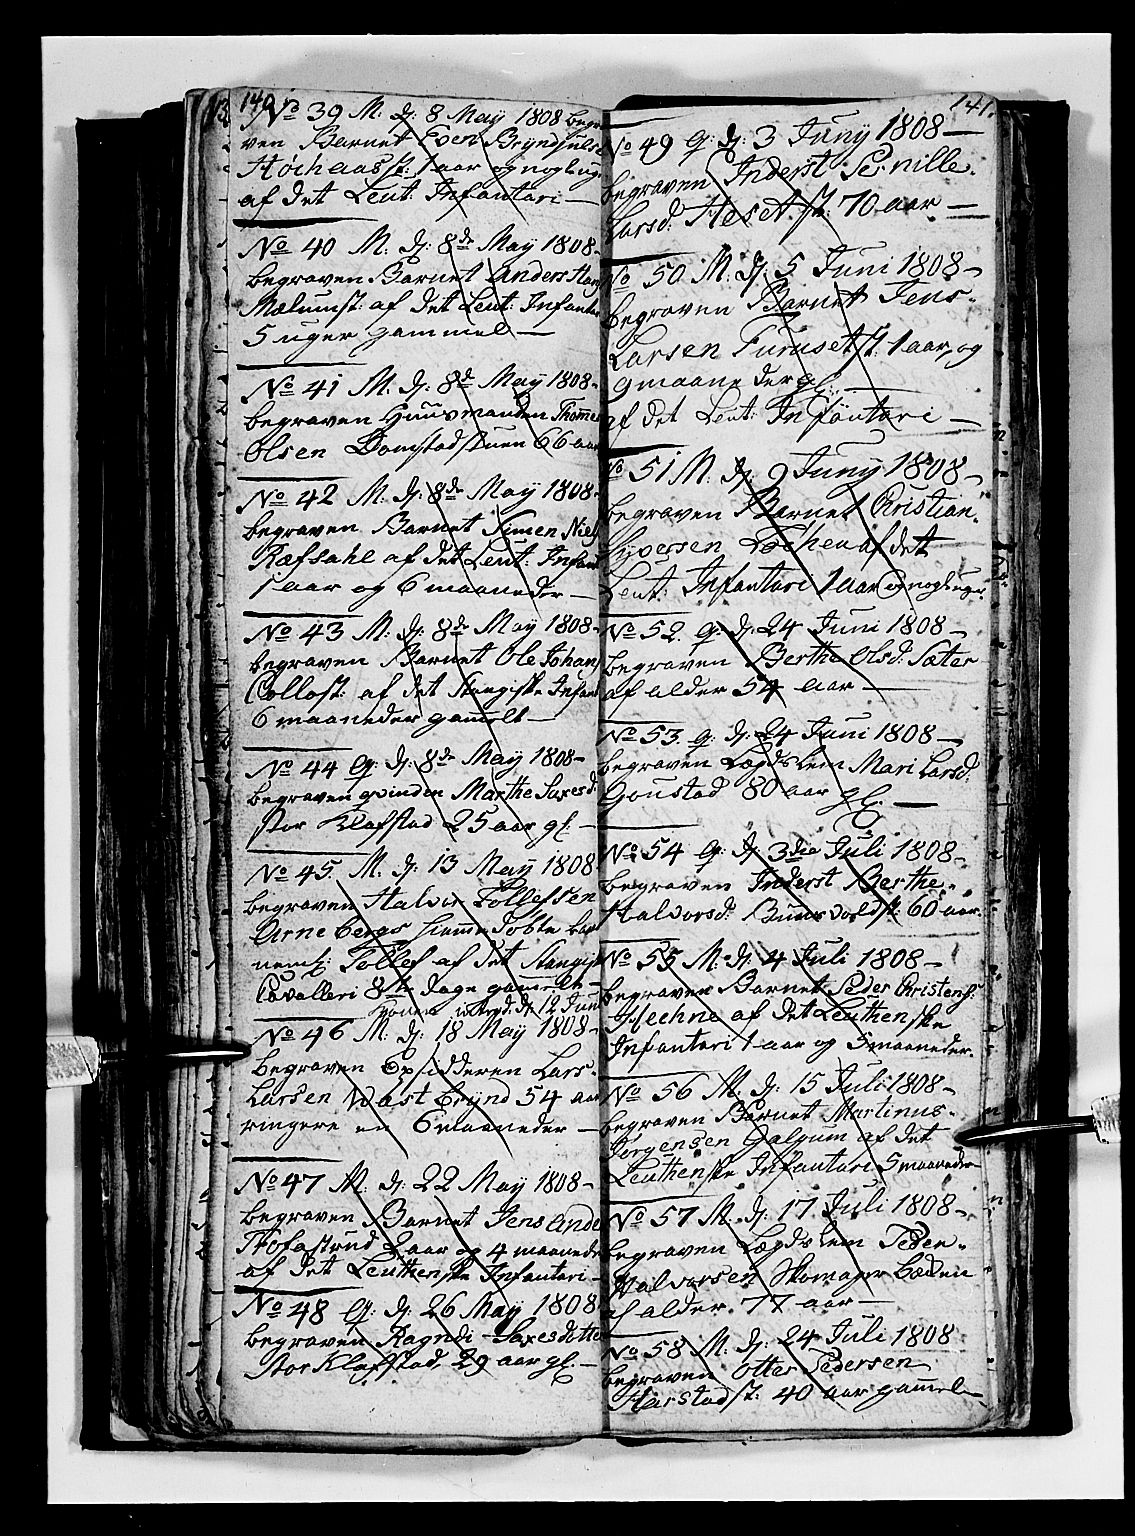 140.
No 39 M. d: 8 May 1808 begra
ven Barnet Even Bryndjuls
Høihaas st: 1 aar og nogle ug
af det Leut: Infantari —
No 40 M. d: 8de May 1808-
begraven Barnet Anders Han
Malumst: af det Leut: Infanta
5 uger gammel —
No 41 M. d: 8de May 1808-
begraven Huusmanden Thomes
Olsen Domstadstuen 66 aar
No 42 M. d: 8de May 1808-
begraven Barnet Simen Niels
Refsahl af det Leut: Infant
1 aar og 6 maaneder —
No 43 M. d: 8de May 1808-
begraven Barnet Ole Johans
Collost: af det Stangiske Infant
6 maaneder gammelt —
No 44 Q: d: 8de May 1808-
begraven qvinden Marthe Saxesd:
stor Klafstad 25 aar gl. —
No 45. M. d: 13 May 1808
begraven Halvor Tollefsen
Arnebergs hiemmedøbte bar
neml: Tollef af det Stangisk
Cavalleri 8te dage gammelt —
Konen introd: d: 12 Juni
No 46 M. d: 18 May 1808-
begraven Lars-
Larsen Wæst Brynd 54 aar
ringere en 6 maaneder —
No 47 M. d: 22 May 1808-
begraven Barnet Jens Ande
Trofastrud 2 aar og 4 maaneder
af det Leuthenske Infantari —
No 48 Q: d: 26 May 1808
begraven Ragndi Saxesdotter
Stor Klafstad, 29 aar gl. —
141.
No 49 Q: d: 3 Juny 1808 —
begraven Inderst Pernille
Larsd: Heset st: 70 aar —
No 50 M. d: 5 Juni 1808-
begraven Barnet Jens-
Larsen Furuset st: 1 aar, og
9 maaneder gl: —
af det Leut: Infantari —
No 51 M. d: 9 Juny 1808-
begraven Barnet Christian
Syversen Løchen af det
Leut: Infantari 1 aar og nogle uger
No 52. Q: d: 24 Juni 1808-
begraven Berthe Olsd: Sæter
af alder 54 aar —
No 53. Q: d: 24 Juni 1808 —
begraven Lægdslem Mari Larsd:
Goustad 80 aar gl. —
No 54 Q: d: 3die Juli 1808-
begraven Inderst Berthe
Halvorsd: st: 60 aar.
No 55 M. d: 4 Juli 1808 —
begraven Barnet Peder Christens:
Flechne af det Leuthenske
Infantari 1 aar og 5 maaneder.
No 56 M. d: 15 Juli 1808-
begraven Barnet Martinus-
Jørgensen Galgum af det
Leuthenske Infantari 5 maaneder
No 57 M. d: 17 Juli 1808-
begraven Lægdslem Peder
Halvorsen Skomager
af alder 77 aar —
No 58 M. d: 24 Juli 1808
begraven Otter Pedersen
Harstad st: 40 aar gammel —